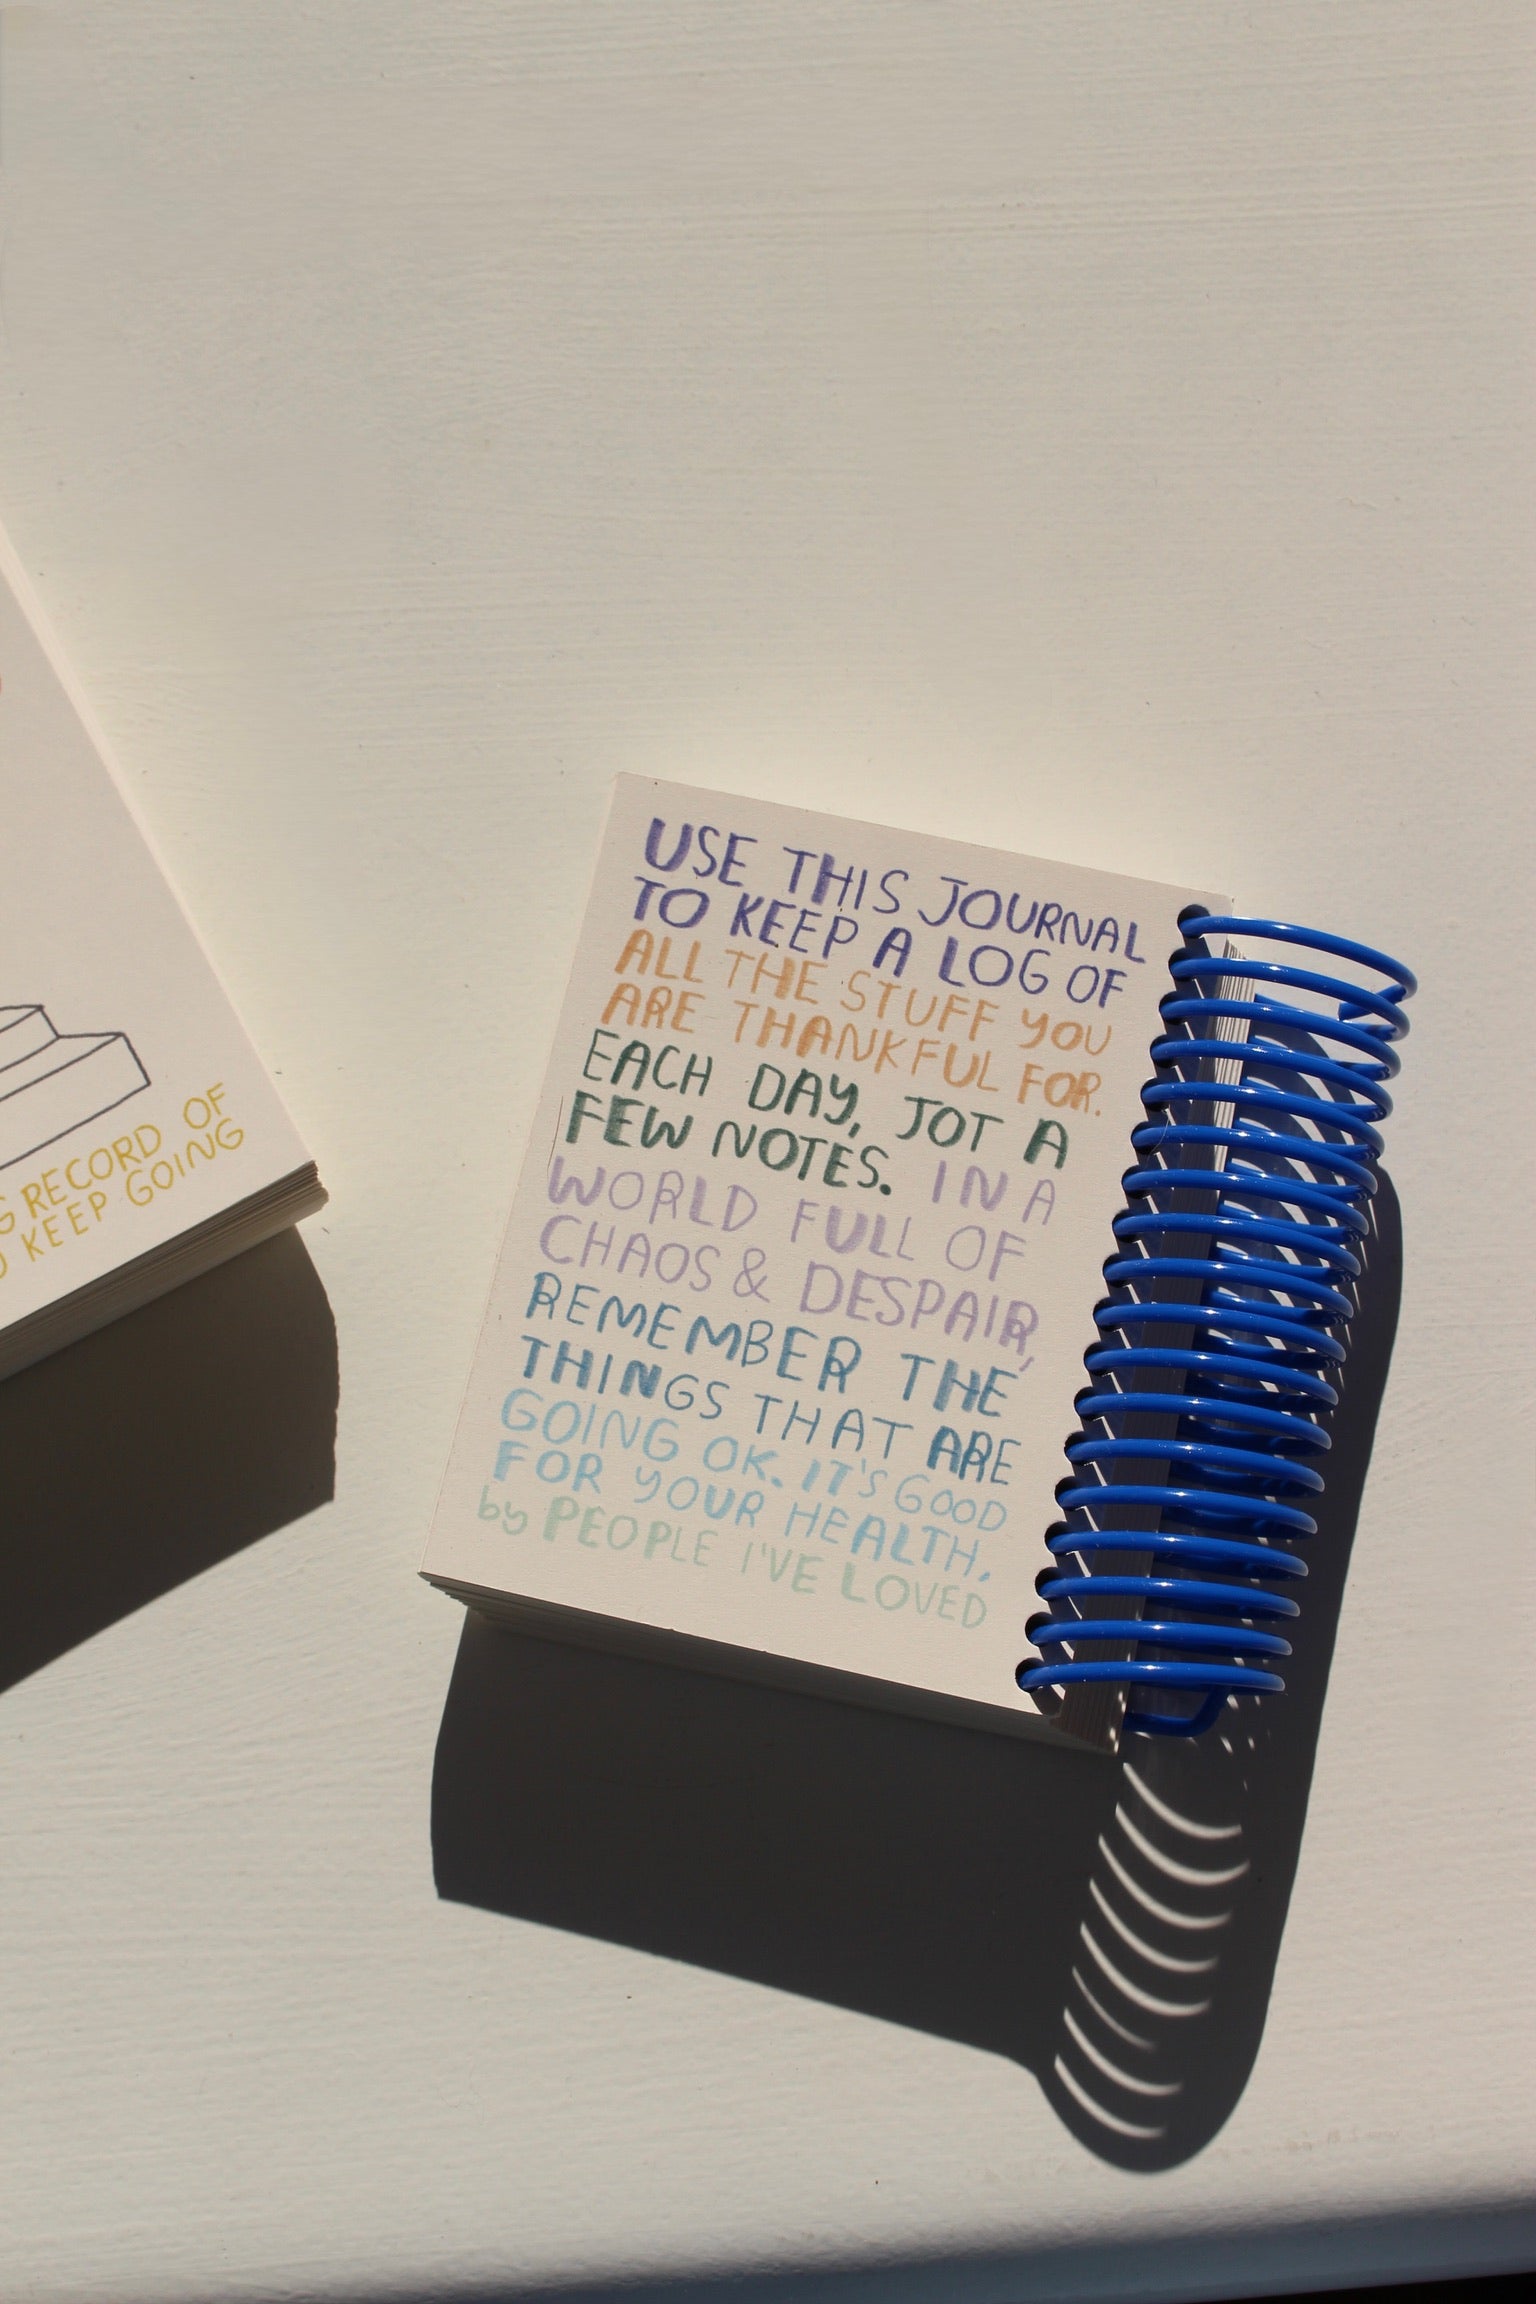 RECORD OF
KEEP GOING
USE THIS JOURNAL
TO KEEP A LOG OF
ALL THE STUFF YOU
ARE THANKFUL FOR.
EACH DAY, JOT A
FEW NOTES. IN A
WORLD FULL OF
CHAOS & DESPAIR,
REMEMBER THE
THINGS THAT ARE
GOING OK. IT'S GOOD
FOR YOUR HEALTH.
by PEOPLE I'VE LOVED